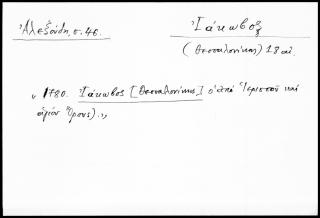 Ἀλεξούδη, σ. 46.
Ἰάκωβος
(Θεσσαλονίκης) 18 αἰ.
„ 1780. Ἰάκωβος [Θεσσαλονίκης] ὁ ἀπὸ Ἱερισσοῦ καὶ
ἁγίου Ὄρους).„